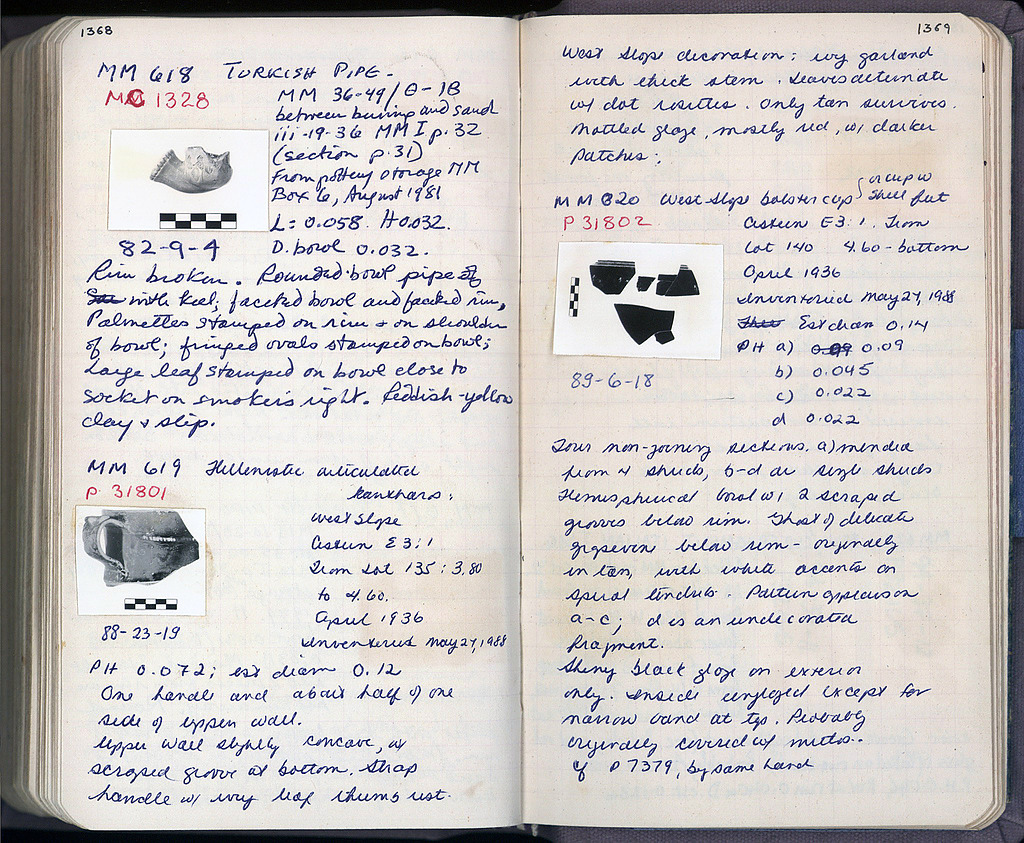 1368
MM 618 TURKISH PIPE -
MC 1328
MM 36-49/Θ-IB
between burning and sand
iii-19-36 MM I p. 32
(section p. 31)
From pottery storage MM
Box 6, August 1981
L = 0.058. H 0.032.
82-9-4
D. bowl 0.032.
Rim broken. Rounded bowl pipe
with keel; faceted bowl and faceted rim,
Palmettes stamped on rim + on shoulder
of bowl; fringed ovals stamped on bowl;
Large leaf stamped on bowl close to
socket on smoker's right. Reddish-yellow
clay + slip.
MM 619 Hellenistic articulated
kantharos:
P. 31801
West Slope
Cistern E 3:1
From Lot 135: 3.80
to 4.60.
April 1936
Inventoried May 27, 1988
88-23-19
PH 0.072; est diam 0.12
One handle and about half of one
side of upper wall.
Upper wall slightly concave, w/
scraped groove at bottom. Strap
handle w/ ivy leaf thumb rest.
1369
West Slope decoration: ivy garland
with thick stem. Leaves alternate
w/ dot rosettes. Only tan survives.
Mottled glaze, mostly red, w/ darker
patches.
MM 620 West Slope bolster cup { or cup w
shell feet
P 31802
Cistern E 3:1. From
Lot 140 4.60 - bottom
April 1936
Inventoried May 27, 1988
Est diam 0.14
PH a) 0.09 0.09
b) 0.045
c) 0.022
d 0.022
89-6-18
Four non-joining sections. a) mended
from 4 sherds, b-d are single sherds
Hemispherical bowl w/ 2 scraped
grooves below rim. Ghost of delicate
grapevine below rim - originally
in tan, with white accents on
spiral tendrils. Pattern appears on
a-c; d is an undecorated
fragment.
Shiny black glaze on exterior
only. Inside unglazed except for
narrow band at top. Probably
originally covered w/ miltos.
cf P 7379, by same hand